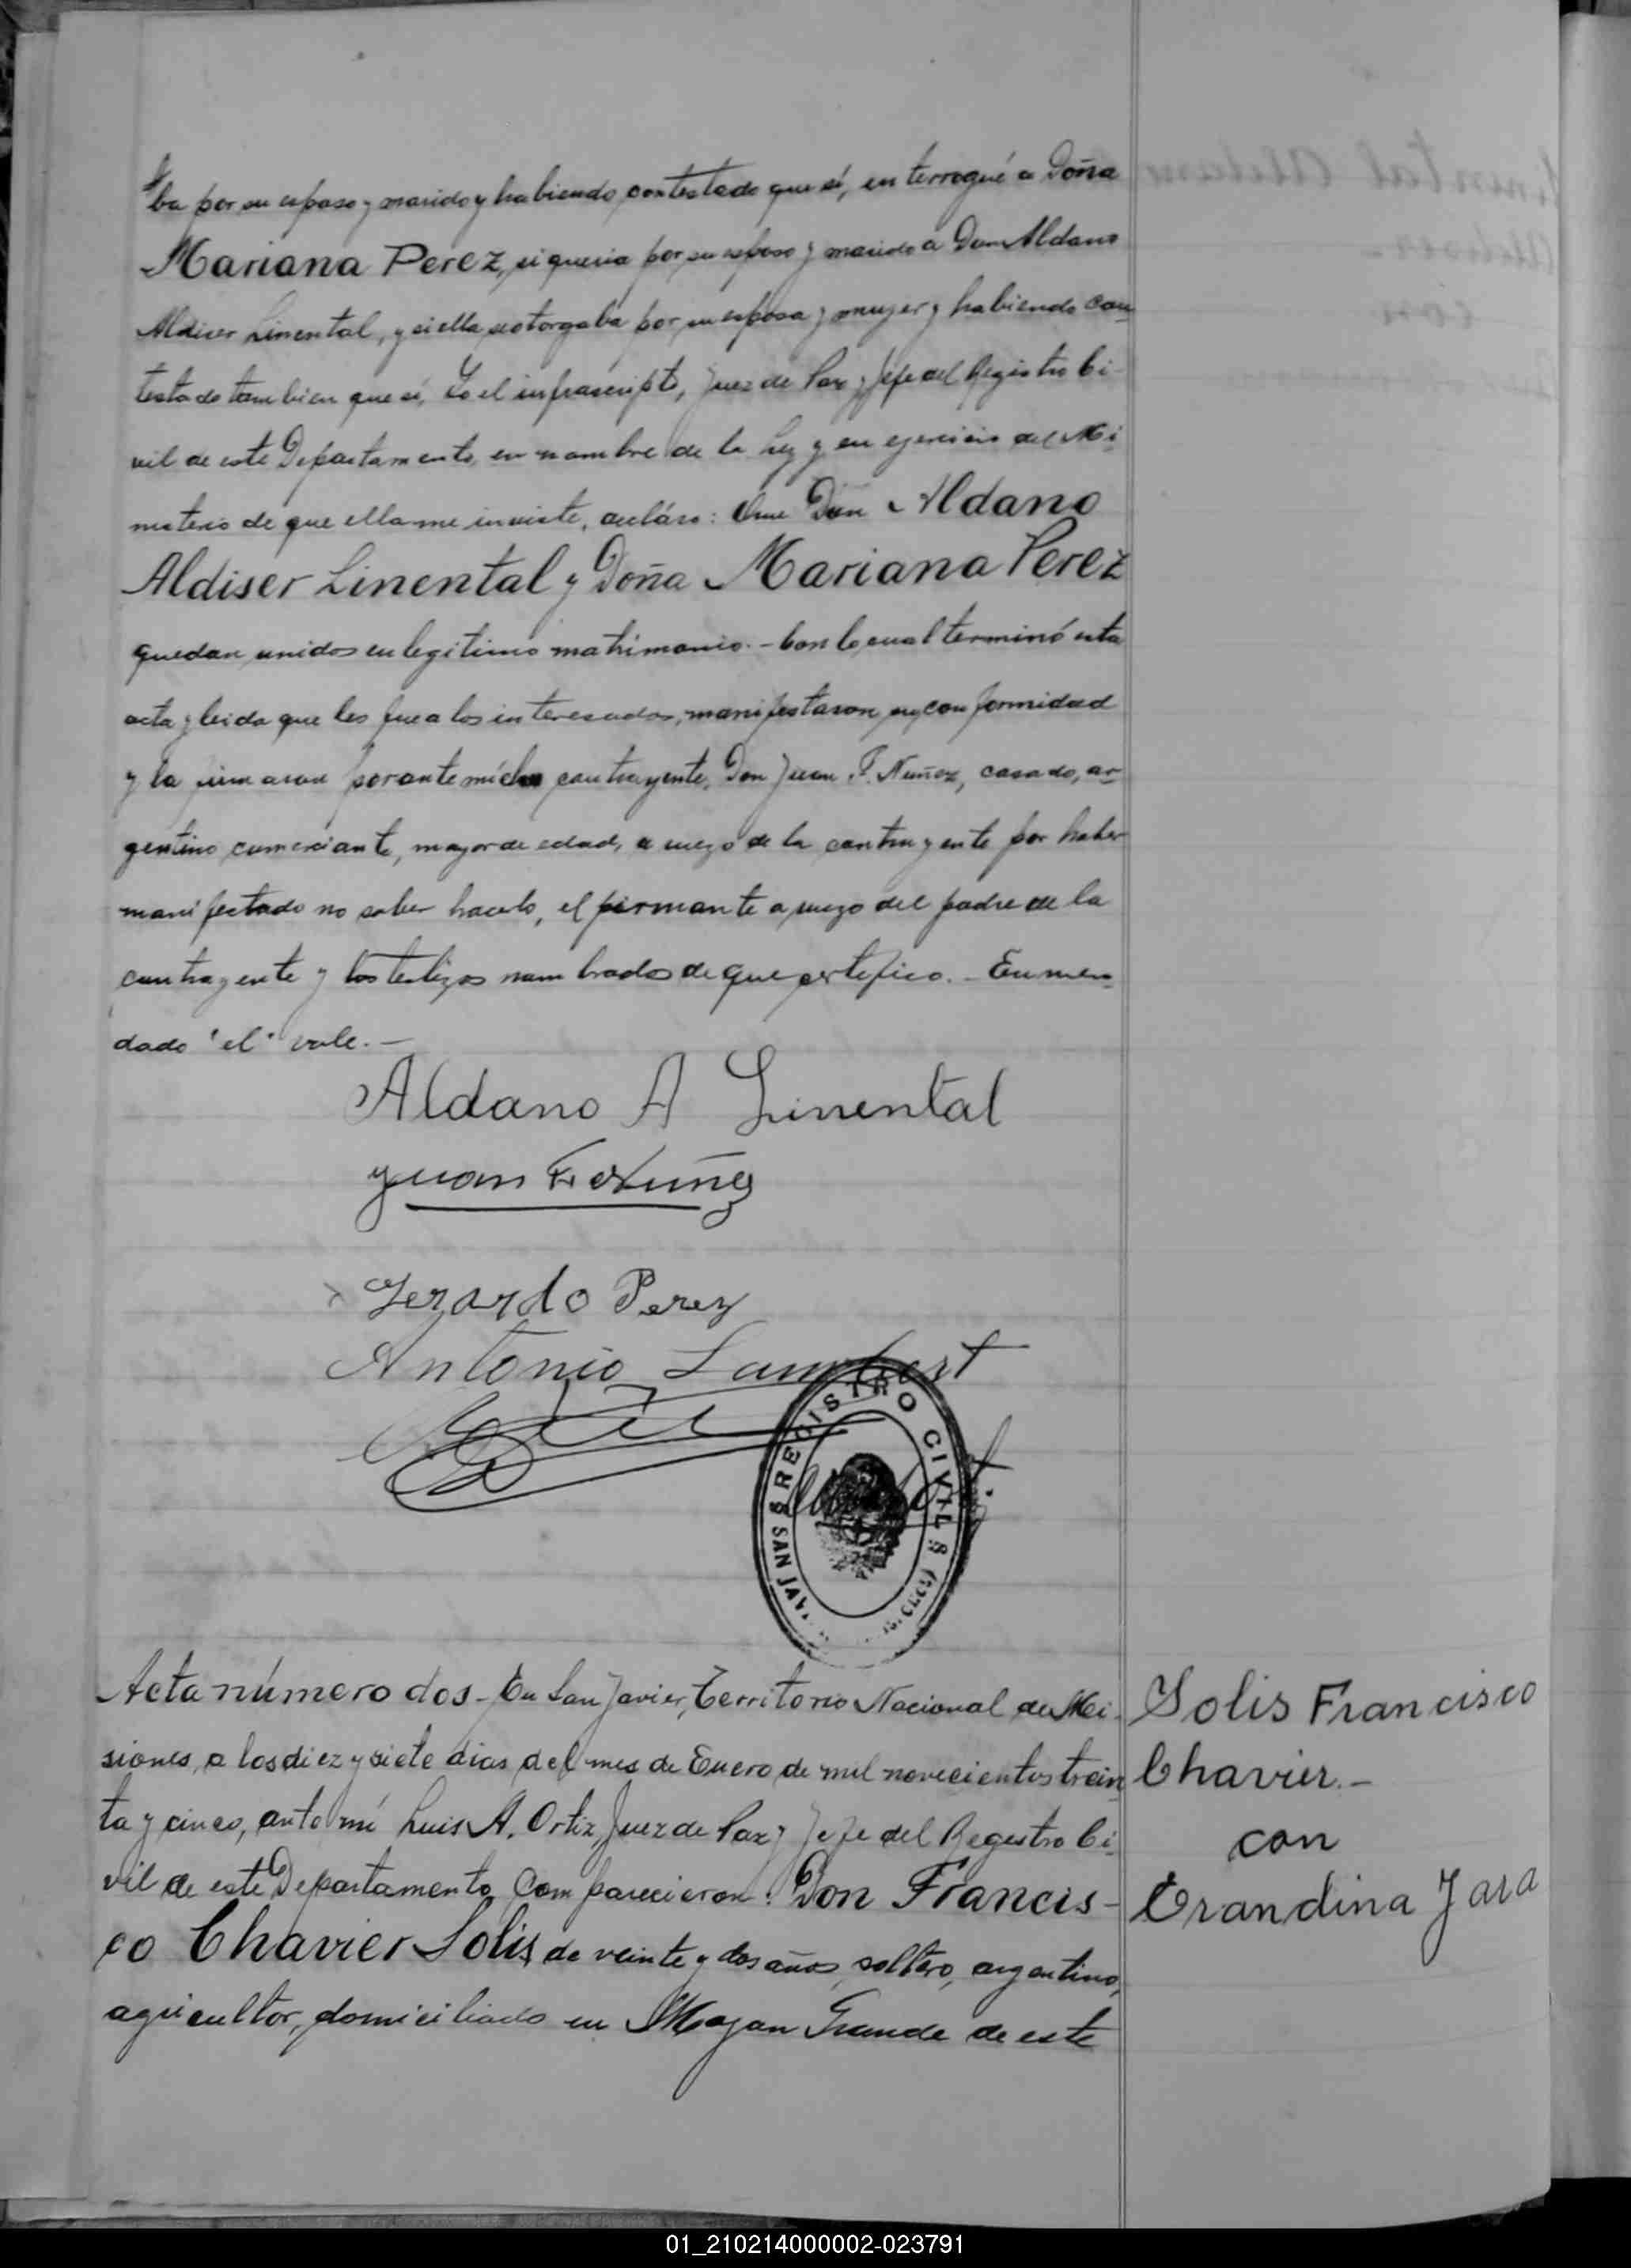 ba por su esposo y marido y habiendo contestado que sí, en terrogué a Doña
Mariana Perez, si queria por su esposo y marido a Don Aldano
Aldiser Linental, y si ella se otorgaba por su esposa y mujer y habiendo con
testado tambien que sí, Yo el infrascripto, Juez de Paz y Jefe del Registro Ci-
vil de este Departamento, en nombre de la Ley y en ejercicio del Mi
nisterio de que ella me inviste, declaro: Que Don Aldano
Aldiser Linental y Doña Mariana Perez
quedan unidos en legitimo matrimonio.- Con lo cual terminó esta
acta y leida que les fue a los interesados, manifestaron su conformidad
y la firmaron por ante mí el contrayente, Don Juan F. Nuñez, casado, ar-
gentino comerciante, mayor de edad, a ruego de la contrayente por haber
manifestado no saber hacerlo, el firmante a ruego del padre de la
contrayente y los testigos nombrados de que certifico.- Enmen-
dado "el" vale.-
Aldano A Linental
Juan F Nuñez
Gerardo Perez
Antonio Lambert
REGISTRO CIVIL
SAN JAV
Acta número dos - En San Javier, Territorio Nacional de Mi-
siones, a los diez y siete dias del mes de Enero de mil novecientos trein
ta y cinco, ante mí Luis A. Ortiz Juez de Paz y Jefe del Registro Ci-
vil de este Departamento, Comparecieron: Don Francis-
co Chavier Solis, de veinte y dos años, soltero, argentino,
agricultor, domiciliado en Mojon Grande de este
Solis Francisco
Chavier.-
con
Erandina Jara
01_210214000002-023791